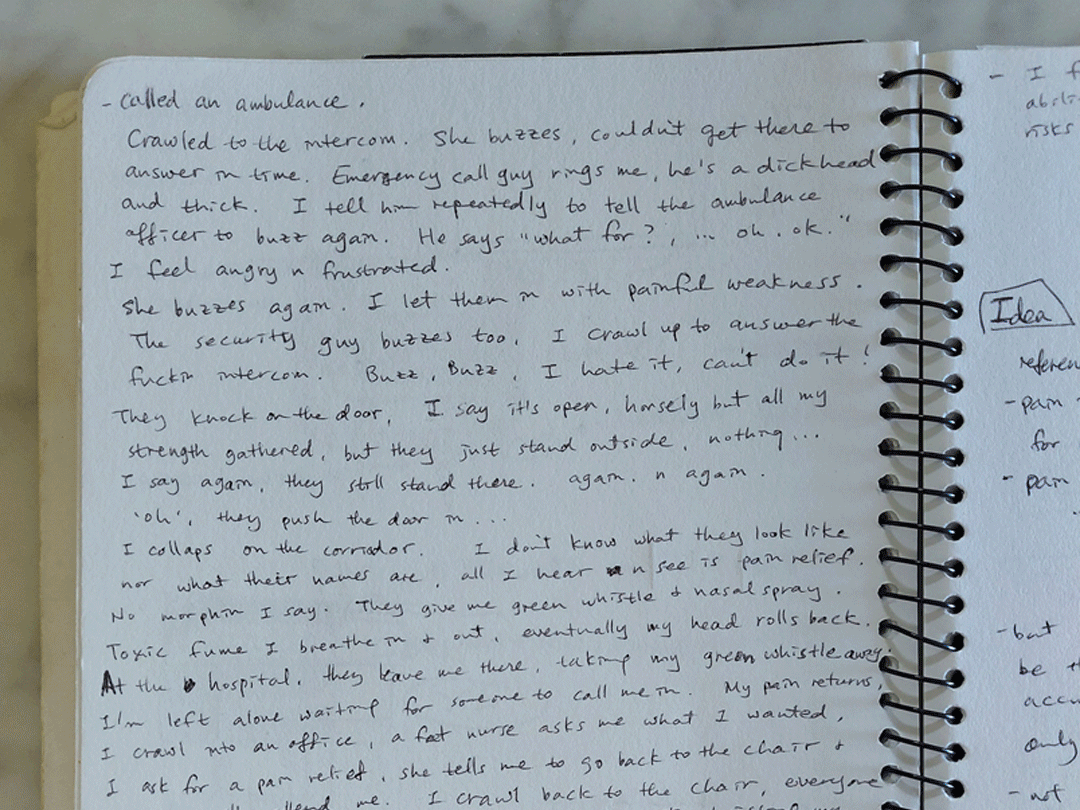 - called an ambulance.
Crawled to the intercom. She buzzes, couldn't get there to
answer in time. Emergency call guy rings me, he's a dickhead
and thick. I tell him repeatedly to tell the ambulance
officer to buzz again. He says "what for?, ... oh. ok."
I feel angry n frustrated.
She buzzes again. I let them in with painful weakness.
The security guy buzzes too, I crawl up to answer the
fuckin intercom. Buzz, Buzz, I hate it, can't do it!
They knock on the door, I say it's open, horsely but all my
strength gathered, but they just stand outside, nothing...
I say again, they still stand there. again. n again.
'oh', they push the door in...
I collaps on the corridor. I don't know what they look like
nor what their names are, all I hear n see is pain relief.
No morphin I say. They give me green whistle + nasal spray.
Toxic fume I breathe in + out, eventually my head rolls back.
At the hospital, they leave me there, taking my green whistle away.
I'm left alone waiting for someone to call me in. My pain returns,
I crawl into an office, a fat nurse asks me what I wanted,
I ask for a pain relief, she tells me to go back to the chair +
me. I crawl back to the chair, everyone
- I f
abili
risks
Idea
referen
- pain
for
- pain
- but
be th
accu
only
- not